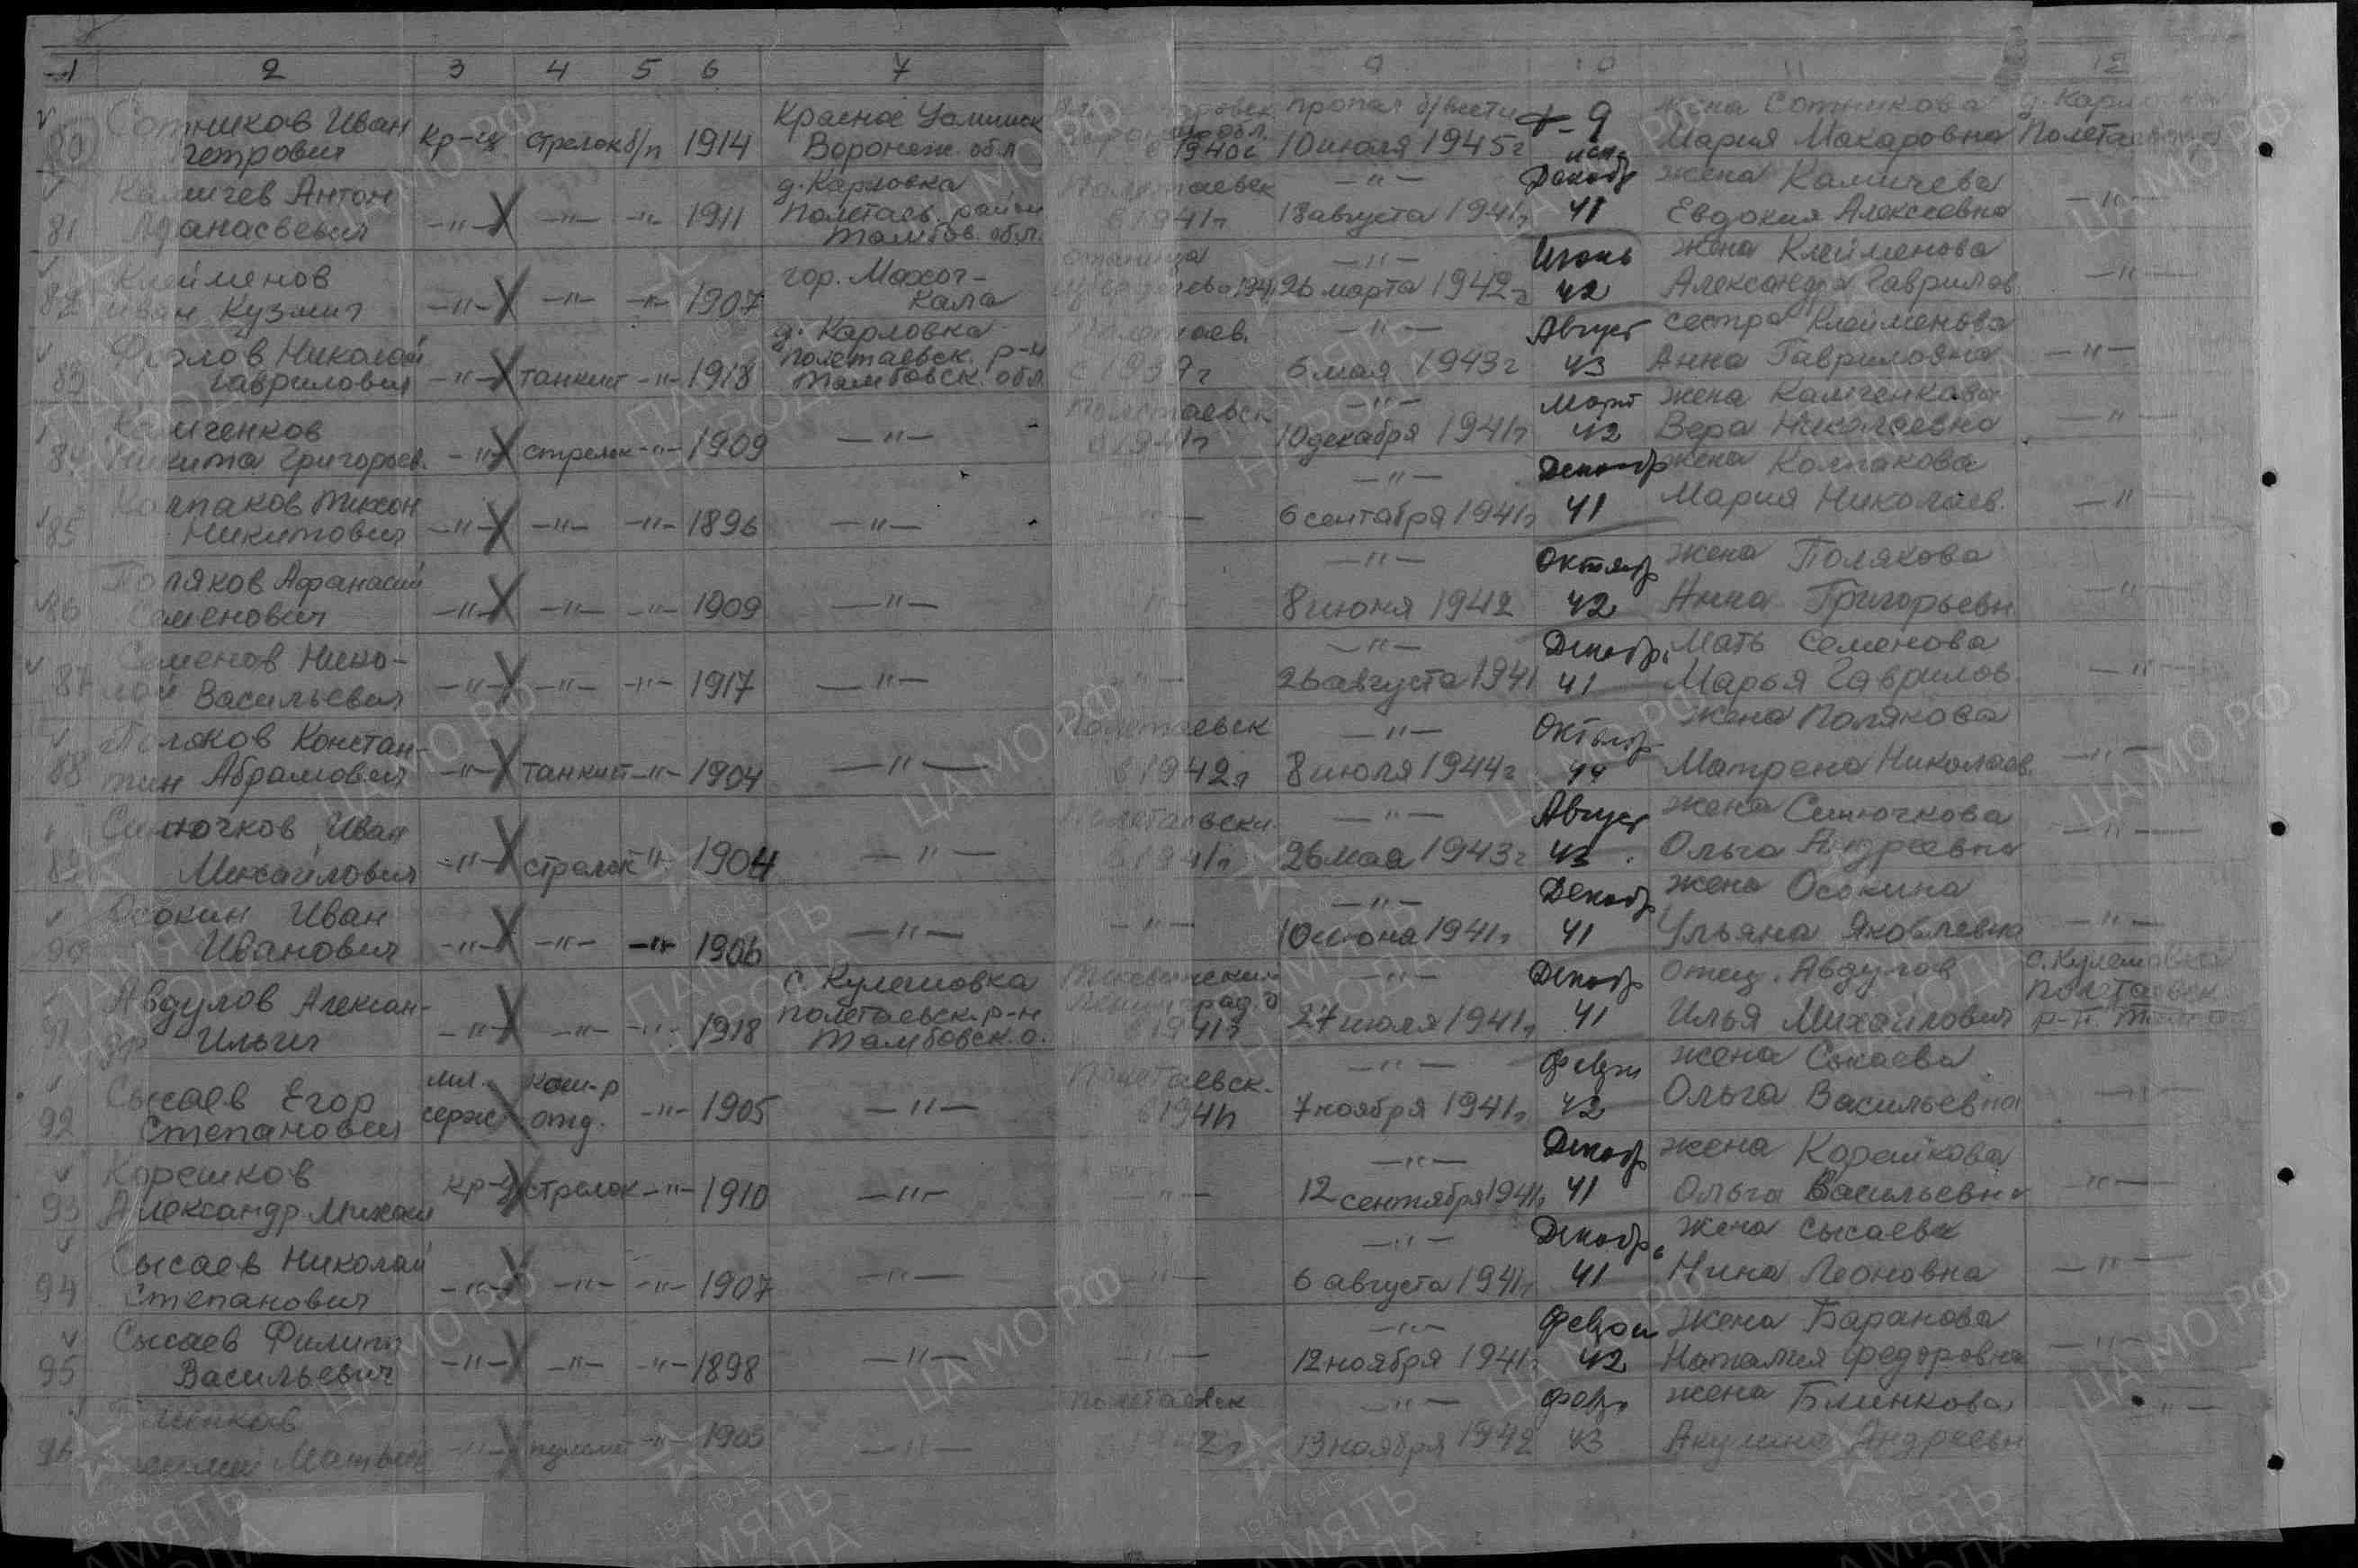 1 2 3 4 5 6 7 9 10 11 12
80 Сотников Иван Петрович кр-ц стрелок б/п 1914 Красное Усманск Воронеж. обл. 1940г пропал б/вести 10 июля 1945г ф-9 исп. жена Сотникова Мария Макаровна д. Карловка Полетаевск
81 Камичев Антон Афанасьевич —"— —"— —"— 1911 д. Карловка Полетаев. район Тамбов. обл. Полетаевск в 1941г —"— 18 августа 1941г Декабр 41 жена Камичева Евдокия Алексеевна —"—
82 Клейменов Иван Кузмич —"— —"— —"— 1907 гор. Махоч-Кала станица 1941 —"— 26 марта 1942г Июнь 42 жена Клейменова Александра Гаврилов. —"—
83 Фролов Николай Гаврилович —"— танкист —"— 1918 д. Карловка Полетаевск. р-н Тамбовск. обл. Полетаев. с 1939г —"— 6 мая 1943г Август 43 сестра Клейменова Анна Гавриловна —"—
84 Камченков Никита Григорьев. —"— стрелок —"— 1909 —"— Полетаевск в 1941г —"— 10 декабря 1941г Март 42 жена Камченкова Вера Николаевна —"—
85 Колпаков Тихон Никитович —"— —"— —"— 1896 —"— —"— —"— 6 сентября 1941г Декабр 41 жена Колпакова Мария Николаев. —"—
86 Поляков Афанасий Семенович —"— —"— —"— 1909 —"— —"— —"— 8 июня 1942 Октябр 42 жена Полякова Анна Григорьевн —"—
87 Семенов Николай Васильевич —"— —"— —"— 1917 —"— —"— —"— 26 августа 1941 Декабр. 41 Мать Семенова Марья Гаврилов. —"—
88 Поляков Констан-тин Абрамович —"— танкист —"— 1904 —"— Полетаевск в 1942г —"— 8 июля 1944г Октябр 44 жена Полякова Матрена Николаев. —"—
89 Синючков Иван Михайлович —"— стрелок —"— 1904 —"— Полетаевски в 1941г —"— 26 мая 1943г Август 43 жена Синючкова Ольга Андреевна —"—
90 Осокин Иван Иванович —"— —"— —"— 1906 —"— —"— —"— 10 1941г Декабр 41 жена Осокина Ульяна Яковлевна —"—
91 Авдулов Алексан-др Ильич —"— —"— —"— 1918 с. Кулешовка Полетаевск. р-н Тамбовск. о. Ленинград. о 1941г —"— 27 июля 1941г Декабр 41 отец. Авдулов Илья Михайлович с. Кулешовка Полетаевск р-н Тамбов
92 Сысаев Егор Степанович мл. серж. ком-р отд. —"— 1905 —"— Полетаевск. в 1941г —"— 7 ноября 1941г Феврл 42 жена Сысаева Ольга Васильевна —"—
93 Корешков Александр Михаил кр-ц стрелок —"— 1910 —"— —"— —"— 12 сентября 1941г Декабр 41 жена Корешкова Ольга Васильевна —"—
94 Сысаев Николай Степанович —"— —"— —"— 1907 —"— —"— —"— 6 августа 1941г Декабр. 41 жена Сысаева Нина Леоновна —"—
95 Сысаев Филипп Васильевич —"— —"— —"— 1898 —"— —"— —"— 12 ноября 1941г Феврал 42 жена Баранова Наталия Федоровна —"—
96 Блинков Матвее —"— —"— 1903 —"— Полетаевск 1942г —"— 13 ноября 1942 Февр. 43 жена Блинкова Акулина Андреевн —"—
ЦАМО РФ
ПАМЯТЬ НАРОДА
1941-1945